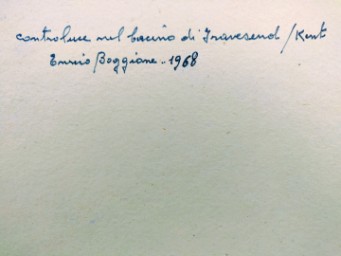 controluce nel bacino di Gravesend / Kent
Enrico Boggione .. 1968